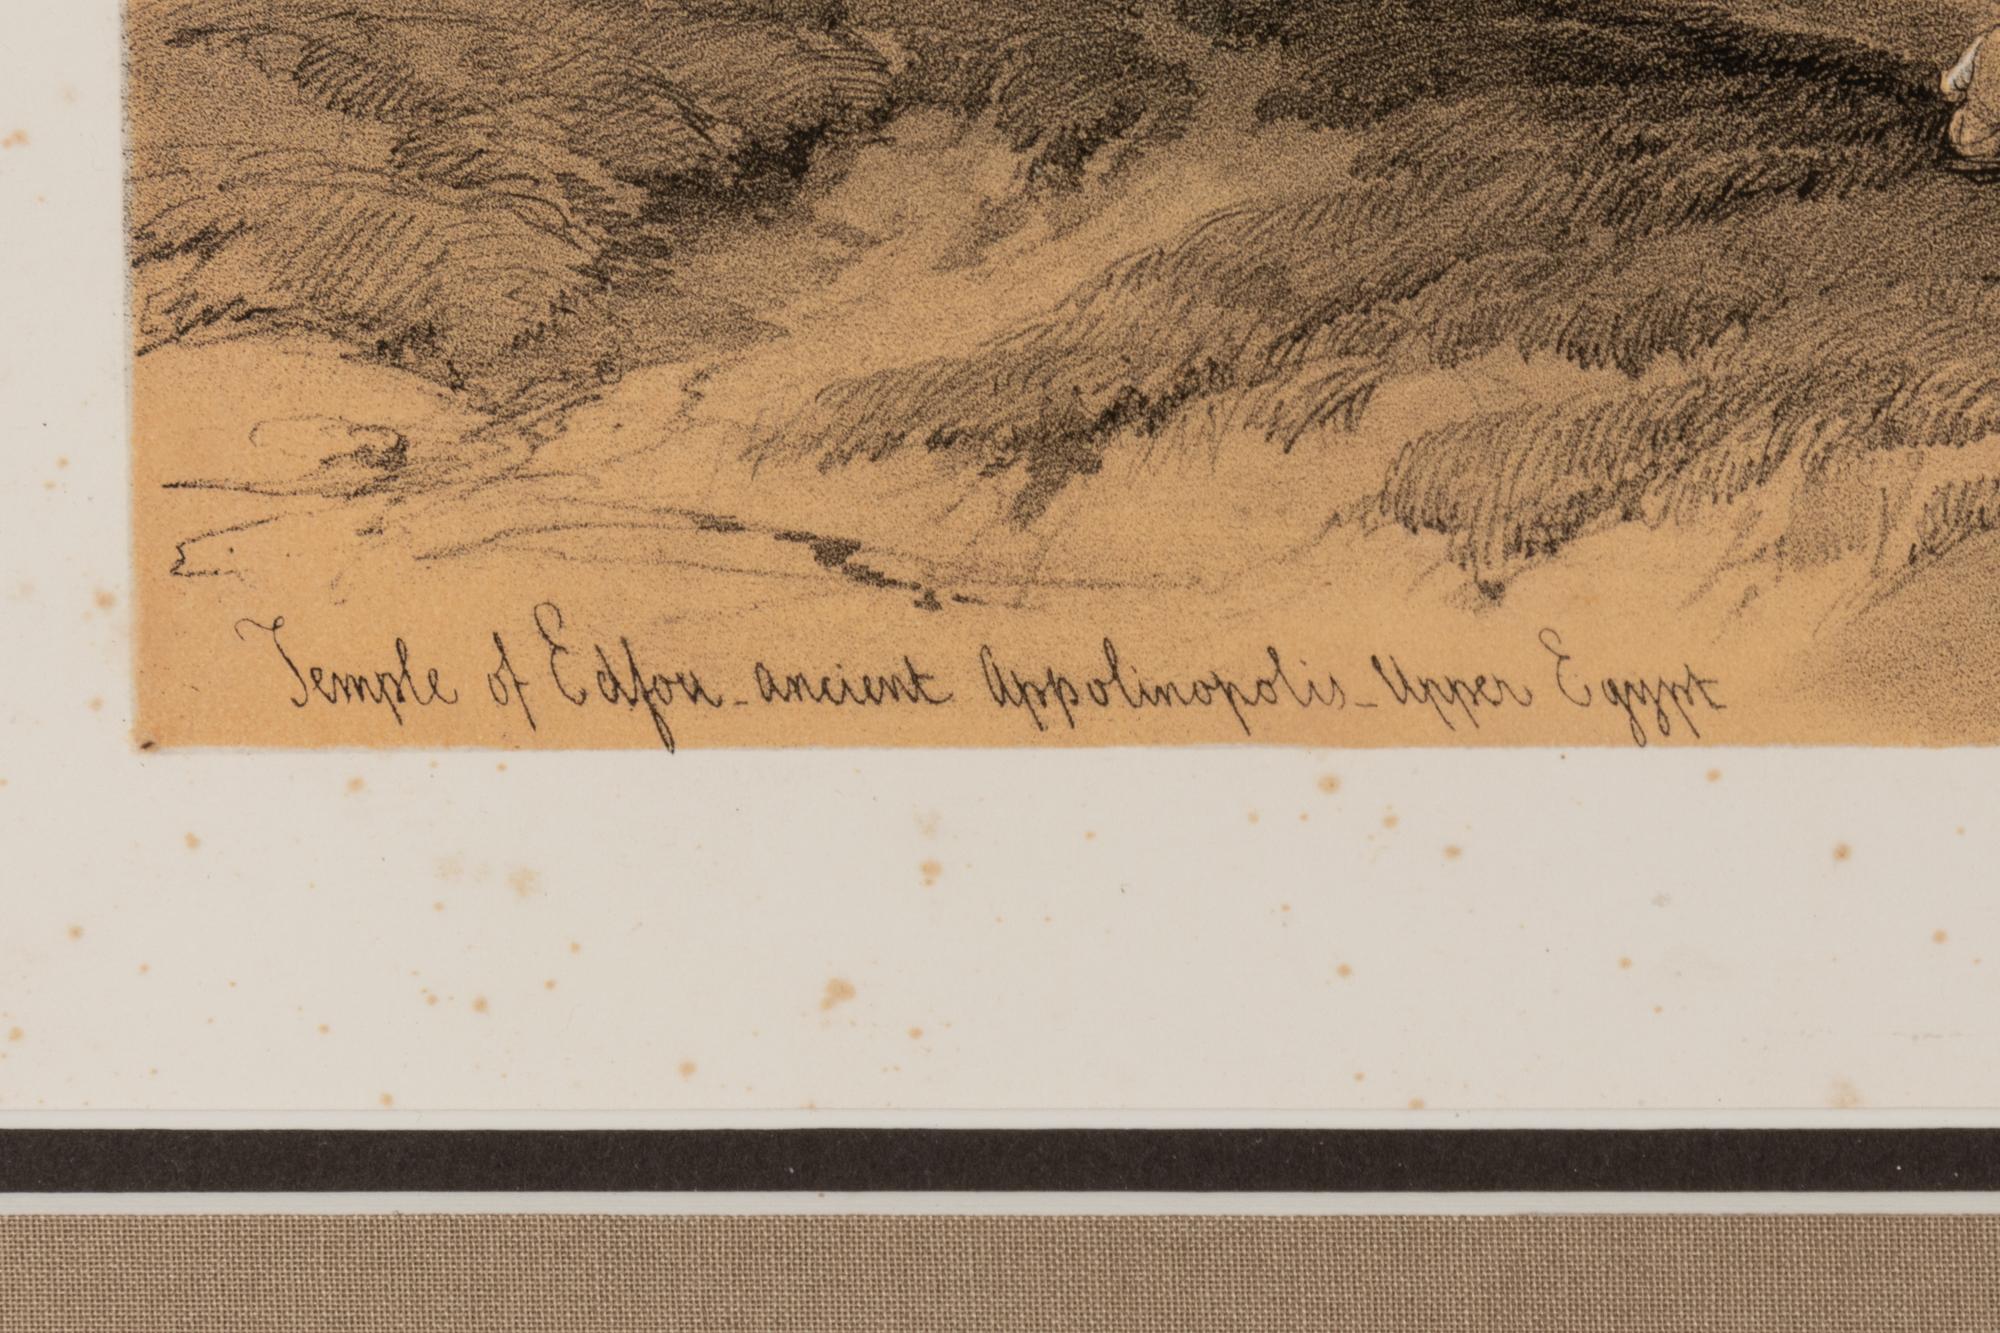 Temple of Edfou - ancient Appolinopolis - Upper Egypt